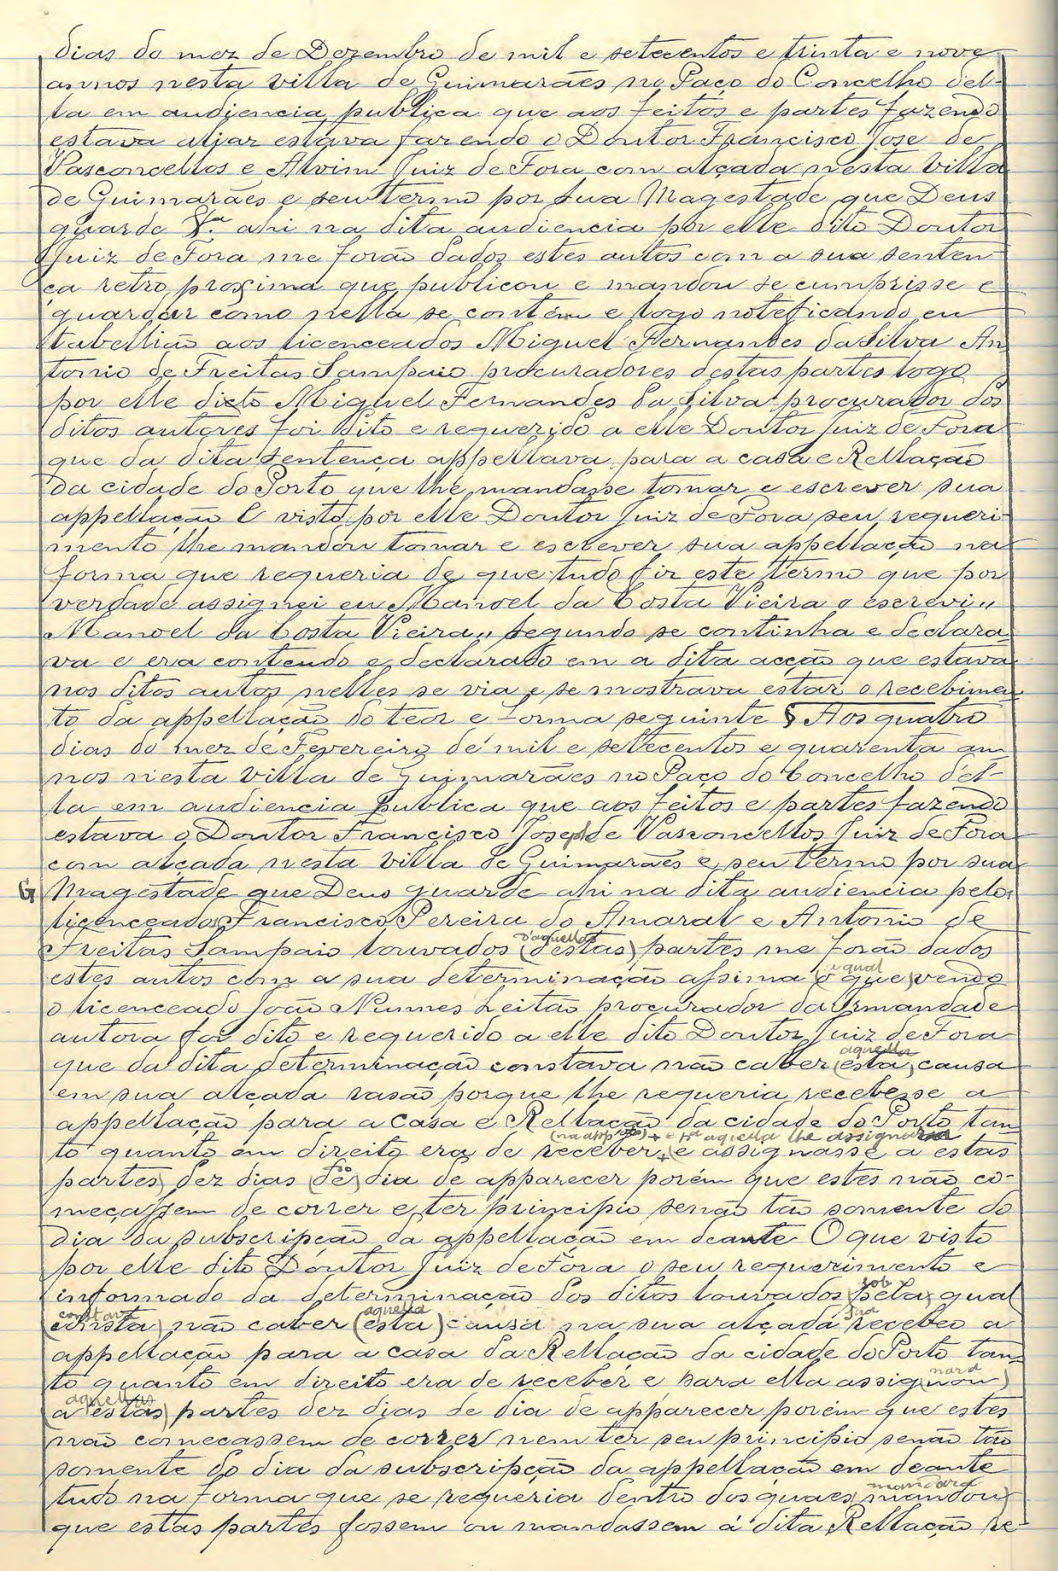 dias do mez de Dezembro de mil e setecentos e trinta e nove
annos nesta villa de Guimarães no Paço do Concelho del-
la em audiencia publica que aos feitos e partes fazendo
estava aliar estava fazendo o Doutor Francisco Jose de
Vasconcellos e Alvim Juiz de Fora com alçada nesta villa
de Guimarães e seu termo por sua Magestade que Deus
guarde &.ª ahi na dita audiencia por elle dito Doutor
Juiz de Fora me forão dados estes autos com a sua senten
ça retro proxima que publicou e mandou se cumprisse e
guardar como nella se contém e logo noteficando eu
tabellião aos licenceados Miguel Fernandes da Silva An
tonio de Freitas Sampaio procuradores destas partes logo
por elle dicto Miguel Fernandes da Silva procurador dos
ditos autores foi dito e requerido a elle Doutor Juiz de Fora
que da dita sentença appellava para a casa e Rellação
da cidade do Porto que lhe mandasse tomar e escrever sua
appellação E visto por elle Doutor Juiz de Fora seu requeri
mento lhe mandou tomar e escrever sua appellação na
forma que requeria de que tudo fiz este termo que por
verdade assignei eu Manoel da Costa Vieira o escrevi „
Manoel da Costa Vieira „ segundo se continha e declara
va e era contendo e declarado em a dita acção que estava
nos ditos autos nelles se via e se mostrava estar o recebimen
to da appellação do teor e forma seguinte § Aos quatro
dias do mez de Fevereiro de mil e setecentos e quarenta an
nos nesta villa de Guimarães no Paço do Concelho del-
la em audiencia publica que aos feitos e partes fazendo
estava o Doutor Francisco Joseph de Vasconcellos Juiz de Fora
com alçada nesta villa de Guimarães e seu termo por sua
G Magestade que Deus guarde ahi na dita audiencia pelos
licenceados Francisco Pereira do Amaral e Antonio de
d'aquellas
Freitas Sampaio louvados (destas) partes me forão dados
e qual
estes autos com a sua determinação assima (o que) vendo
o licenceado João Nunnes Leitão procurador da Irmandade
autora foi dito e requerido a elle dito Doutor Juiz de Fora
aquella
que da dita determinação constava não caber (esta) causa
em sua alçada rasão porque lhe requeria recebesse a
appellação para a Casa e Rellação da cidade do Porto tan
aquella lhe assignara
to quanto em direito era de receber + (e assignasse a estas
partes) dez dias (de) dia de apparecer porém que estes não co-
meçassem de correr e ter principio senão tão somente do
dia da subscripção da appellação em deante O que visto
por elle dito Doutor Juiz de Fora o seu requerimento e
sob
informado da determinação dos ditos louvados (pela) qual
constante aquella
(consta) não caber (esta) causa na sua alçada recebeo a
appellação para a casa da Rellação da cidade do Porto tan-
nara
to quanto em direito era de receber e para ella assig(nou)
aquellas
(a estas) partes dez dias de dia de apparecer porém que estes
não começassem de correr nem ter seu principio senão tão
somente do dia da subscripção da appellação em deante
mandara
tudo na forma que se requeria dentro dos quaes (mandou)
que estas partes fossem ou mandassem á dita Rellação re-